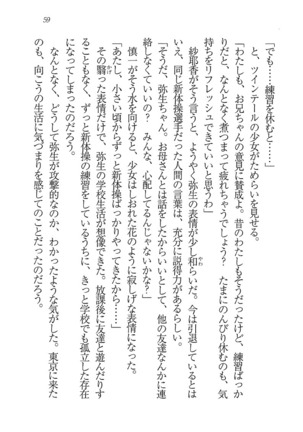 59
「でも……練習を休むと……」
と、ツインテールの少女がためらいを見せる。
「あたしも、お兄ちゃんの意見に賛成よ。昔のわたしもそうだったけど、練習ばか
りだと、なんとなく煮つまって疲れちゃうでしょう？　たまにのんびり休むのも、気
持ちをリフレッシュできていいと思うわ」
紗耶香がそう言うと、ようやく弥生の表情が少し和らいだ。今は引退しているとは
いえ、同じ新体操選手だった人間の言葉は、充分に説得力があるらしい。
「そうだ、弥生ちゃん。お母さんとは話をしたからいいとして、他の友達なんかに連
絡しなくていい？　みんな、心配してるんじゃないかな？」
慎一がそう水を向けると、少女はしおれた花のように寂しげな表情になった。
「あたし、小さい頃からずっと新体操ばっかりやってきたから……」
その翳った表情だけで、弥生の学校生活が想像できた。放課後に友達と遊んだりす
ることもなく、ずっと新体操の練習をしているうちに、きっと学校でも孤立した存在
になってしまったのだろう。
なんとなく、どうして弥生が攻撃的なのか、わかったような気がした。東京に来た
のも、向こうの生活に気づまりを感じてのことだったのだろう。